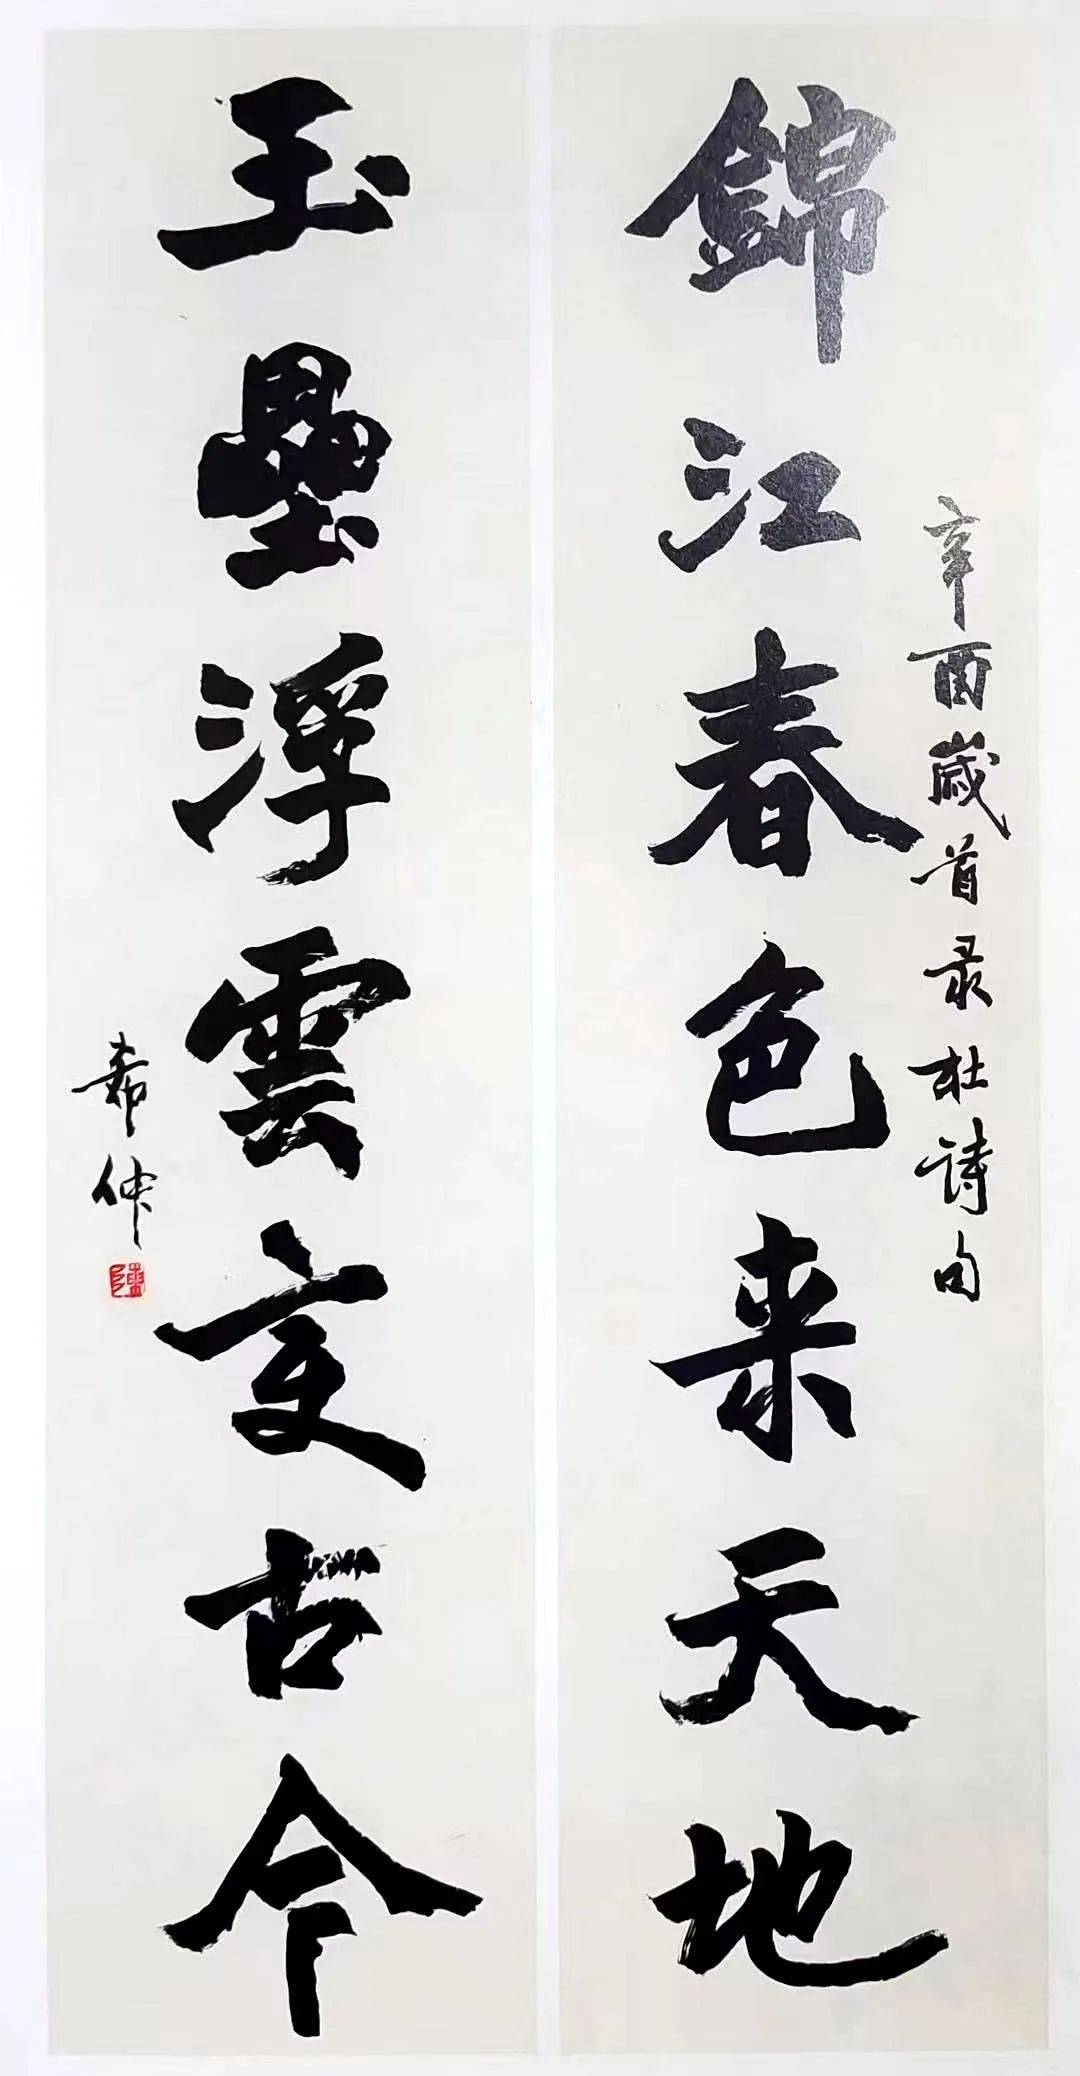 辛酉歲首录杜诗句
錦江春色来天地
玉壘浮雲变古今
希仲